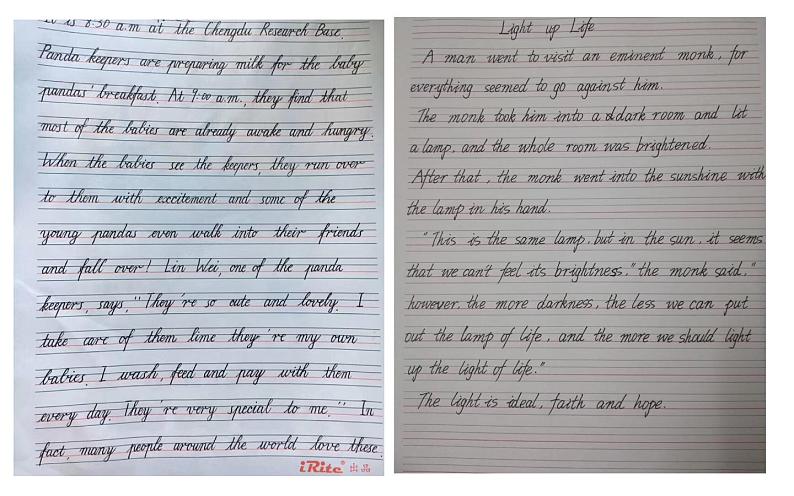 It is 8:30 a.m at the Chengdu Research Base.
Panda keepers are preparing milk for the baby
pandas' breakfast. At 9:00 a.m., they find that
most of the babies are already awake and hungry.
When the babies see the keepers, they run over
to them with excitement and some of the
young pandas even walk into their friends
and fall over! Lin Wei, one of the panda
keepers, says, "They're so cute and lovely. I
take care of them lime they're my own
babies. I wash, feed and pay with them
every day. They're very special to me." In
fact, many people around the world love these
iRite® 出品
Light up Life
A man went to visit an eminent monk, for
everything seemed to go against him.
The monk took him into a dark room and lit
a lamp, and the whole room was brightened.
After that, the monk went into the sunshine with
the lamp in his hand.
"This is the same lamp, but in the sun, it seems
that we can't feel its brightness," the monk said, "
however, the more darkness, the less we can put
out the lamp of life, and the more we should light
up the light of life."
The light is ideal, faith and hope.